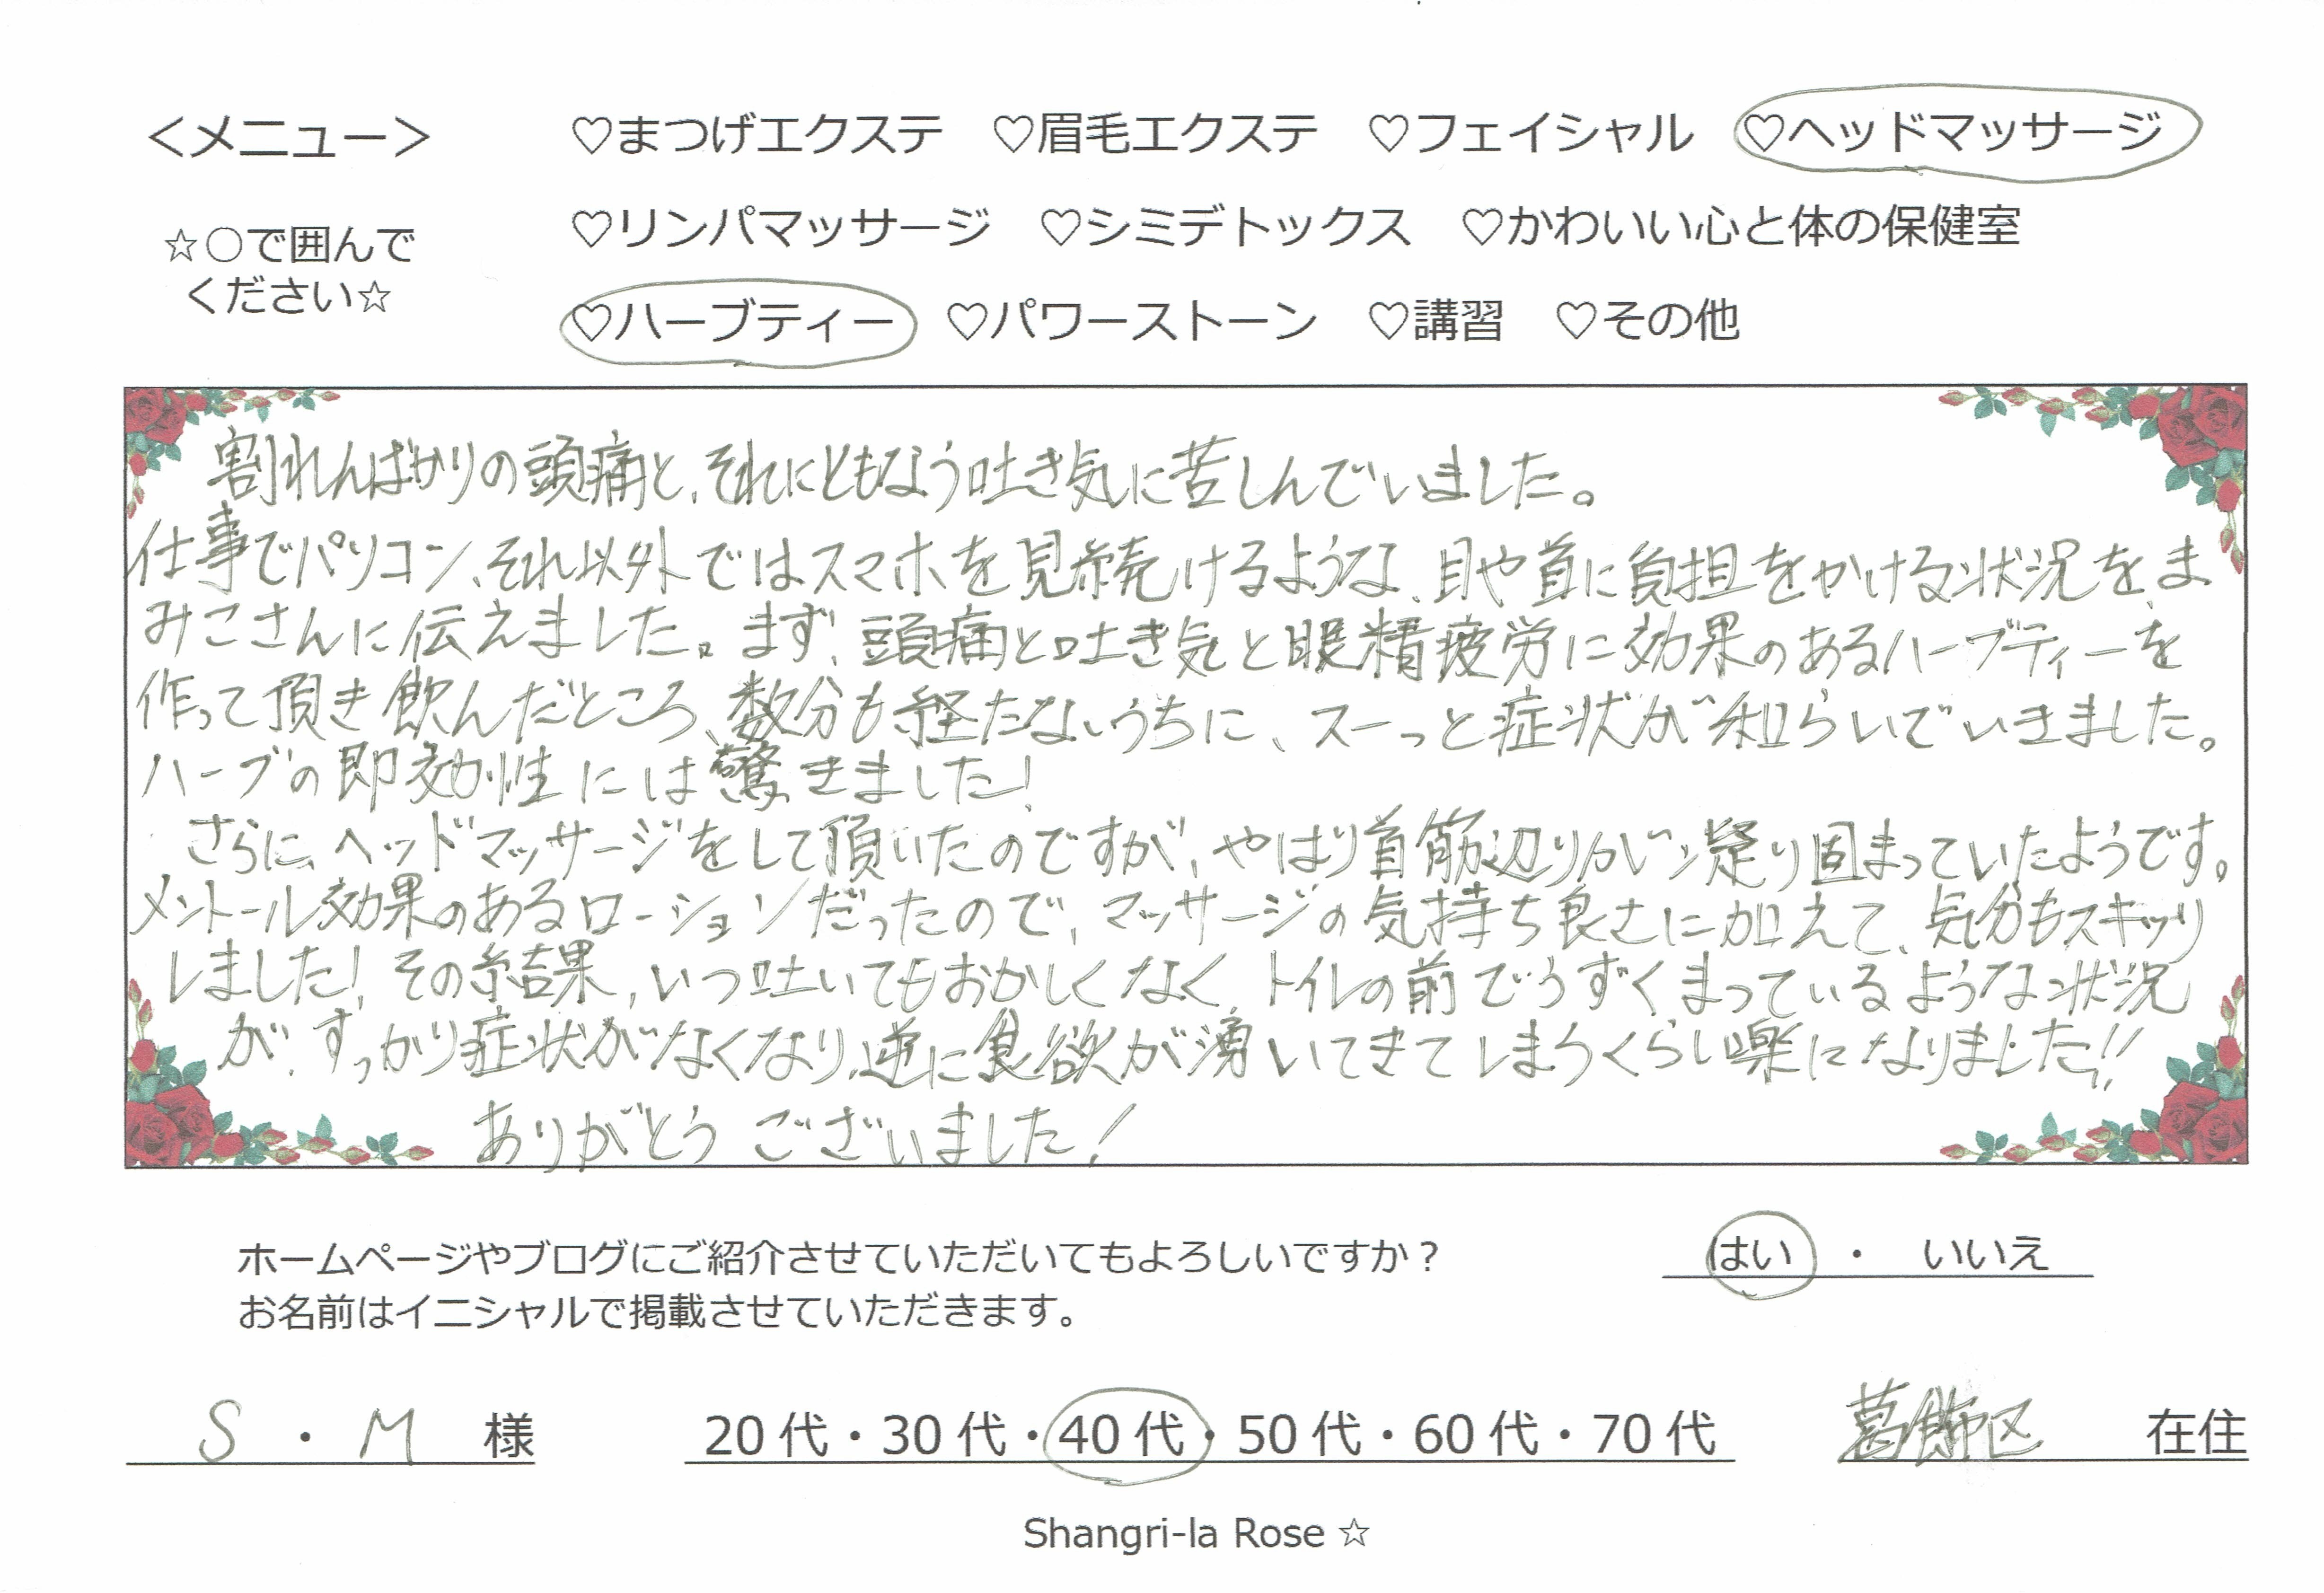 ＜メニュー＞ ♡まつげエクステ ♡眉毛エクステ ♡フェイシャル ♡ヘッドマッサージ
☆○で囲んで
ください☆
♡リンパマッサージ ♡シミデトックス ♡かわいい心と体の保健室
♡ハーブティー ♡パワーストーン ♡講習 ♡その他
割れんばかりの頭痛と、それにともなう吐き気に苦しんでいました。
仕事でパソコン、それ以外ではスマホを見続けるような、目や首に負担をかける状況を、ま
みこさんに伝えました。まず、頭痛と吐き気と眼精疲労に効果のあるハーブティーを
作って頂き飲んだところ、数分も経たないうちに、スーっと症状が和らいでいきました。
ハーブの即効性には驚きました!
さらに、ヘッドマッサージをして頂いたのですが、やはり首筋辺りが凝り固まっていたようです。
メントール効果のあるローションだったので、マッサージの気持ち良さに加えて、気分もスキッリ
しました! その結果、いつ吐いてもおかしくなく、トイレの前でうずくまっているような状況
が、すっかり症状がなくなり、逆に食欲が湧いてきてしまうくらい楽になりました!!
ありがとうございました!
ホームページやブログにご紹介させていただいてもよろしいですか？ はい ・ いいえ
お名前はイニシャルで掲載させていただきます。
S ・ M 様 20代・30代・40代・50代・60代・70代 葛飾区 在住
Shangri-la Rose ☆